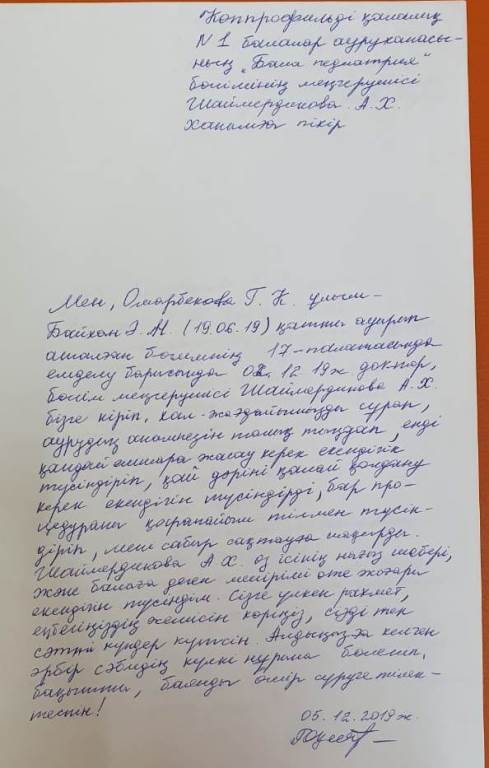 Көппрофильді қалалық
N 1 балалар ауруханасы-
ның „Бала педиатрия"
бөлімінің меңгерушісі
Шаймердинова. А.Х.
ханымға пікір
Мен, Омарбекова Г. К. ұлым-
Байхан Ә.М. (19.06.19) қатты ауырып
аталған бөлімнің 17-палатасында
емделу барысында 02. 12 19ж доктор,
бөлім меңгерушісі Шаймердинова А.Х.
бізге кіріп, хал-жағдайымызды сұрап,
аурудың анамнезін толық тыңдап, енді
қандай шара жасау керек екендігін
түсіндіріп, қай дәріні қалай қолдану
керек екендігін түсіндірді, бар про-
цедураны қарапайым тілмен түсін-
діріп, мені сабыр сақтауға шақырды.
Шаймердинова А.Х. өз ісінің нағыз шебері,
және балаға деген мейірімі өте жоғары
екендігін түсіндім. Сізге үлкен рахмет,
еңбегіңіздің жемісін көріңіз, сізді тек
сәтті күндер күтсін. Алдыңызға келген
әрбір сәбидің күлкі нұрына бөленіп,
бақытты, баянды өмір сүруге тілек-
теспін!
05.12.2019ж.